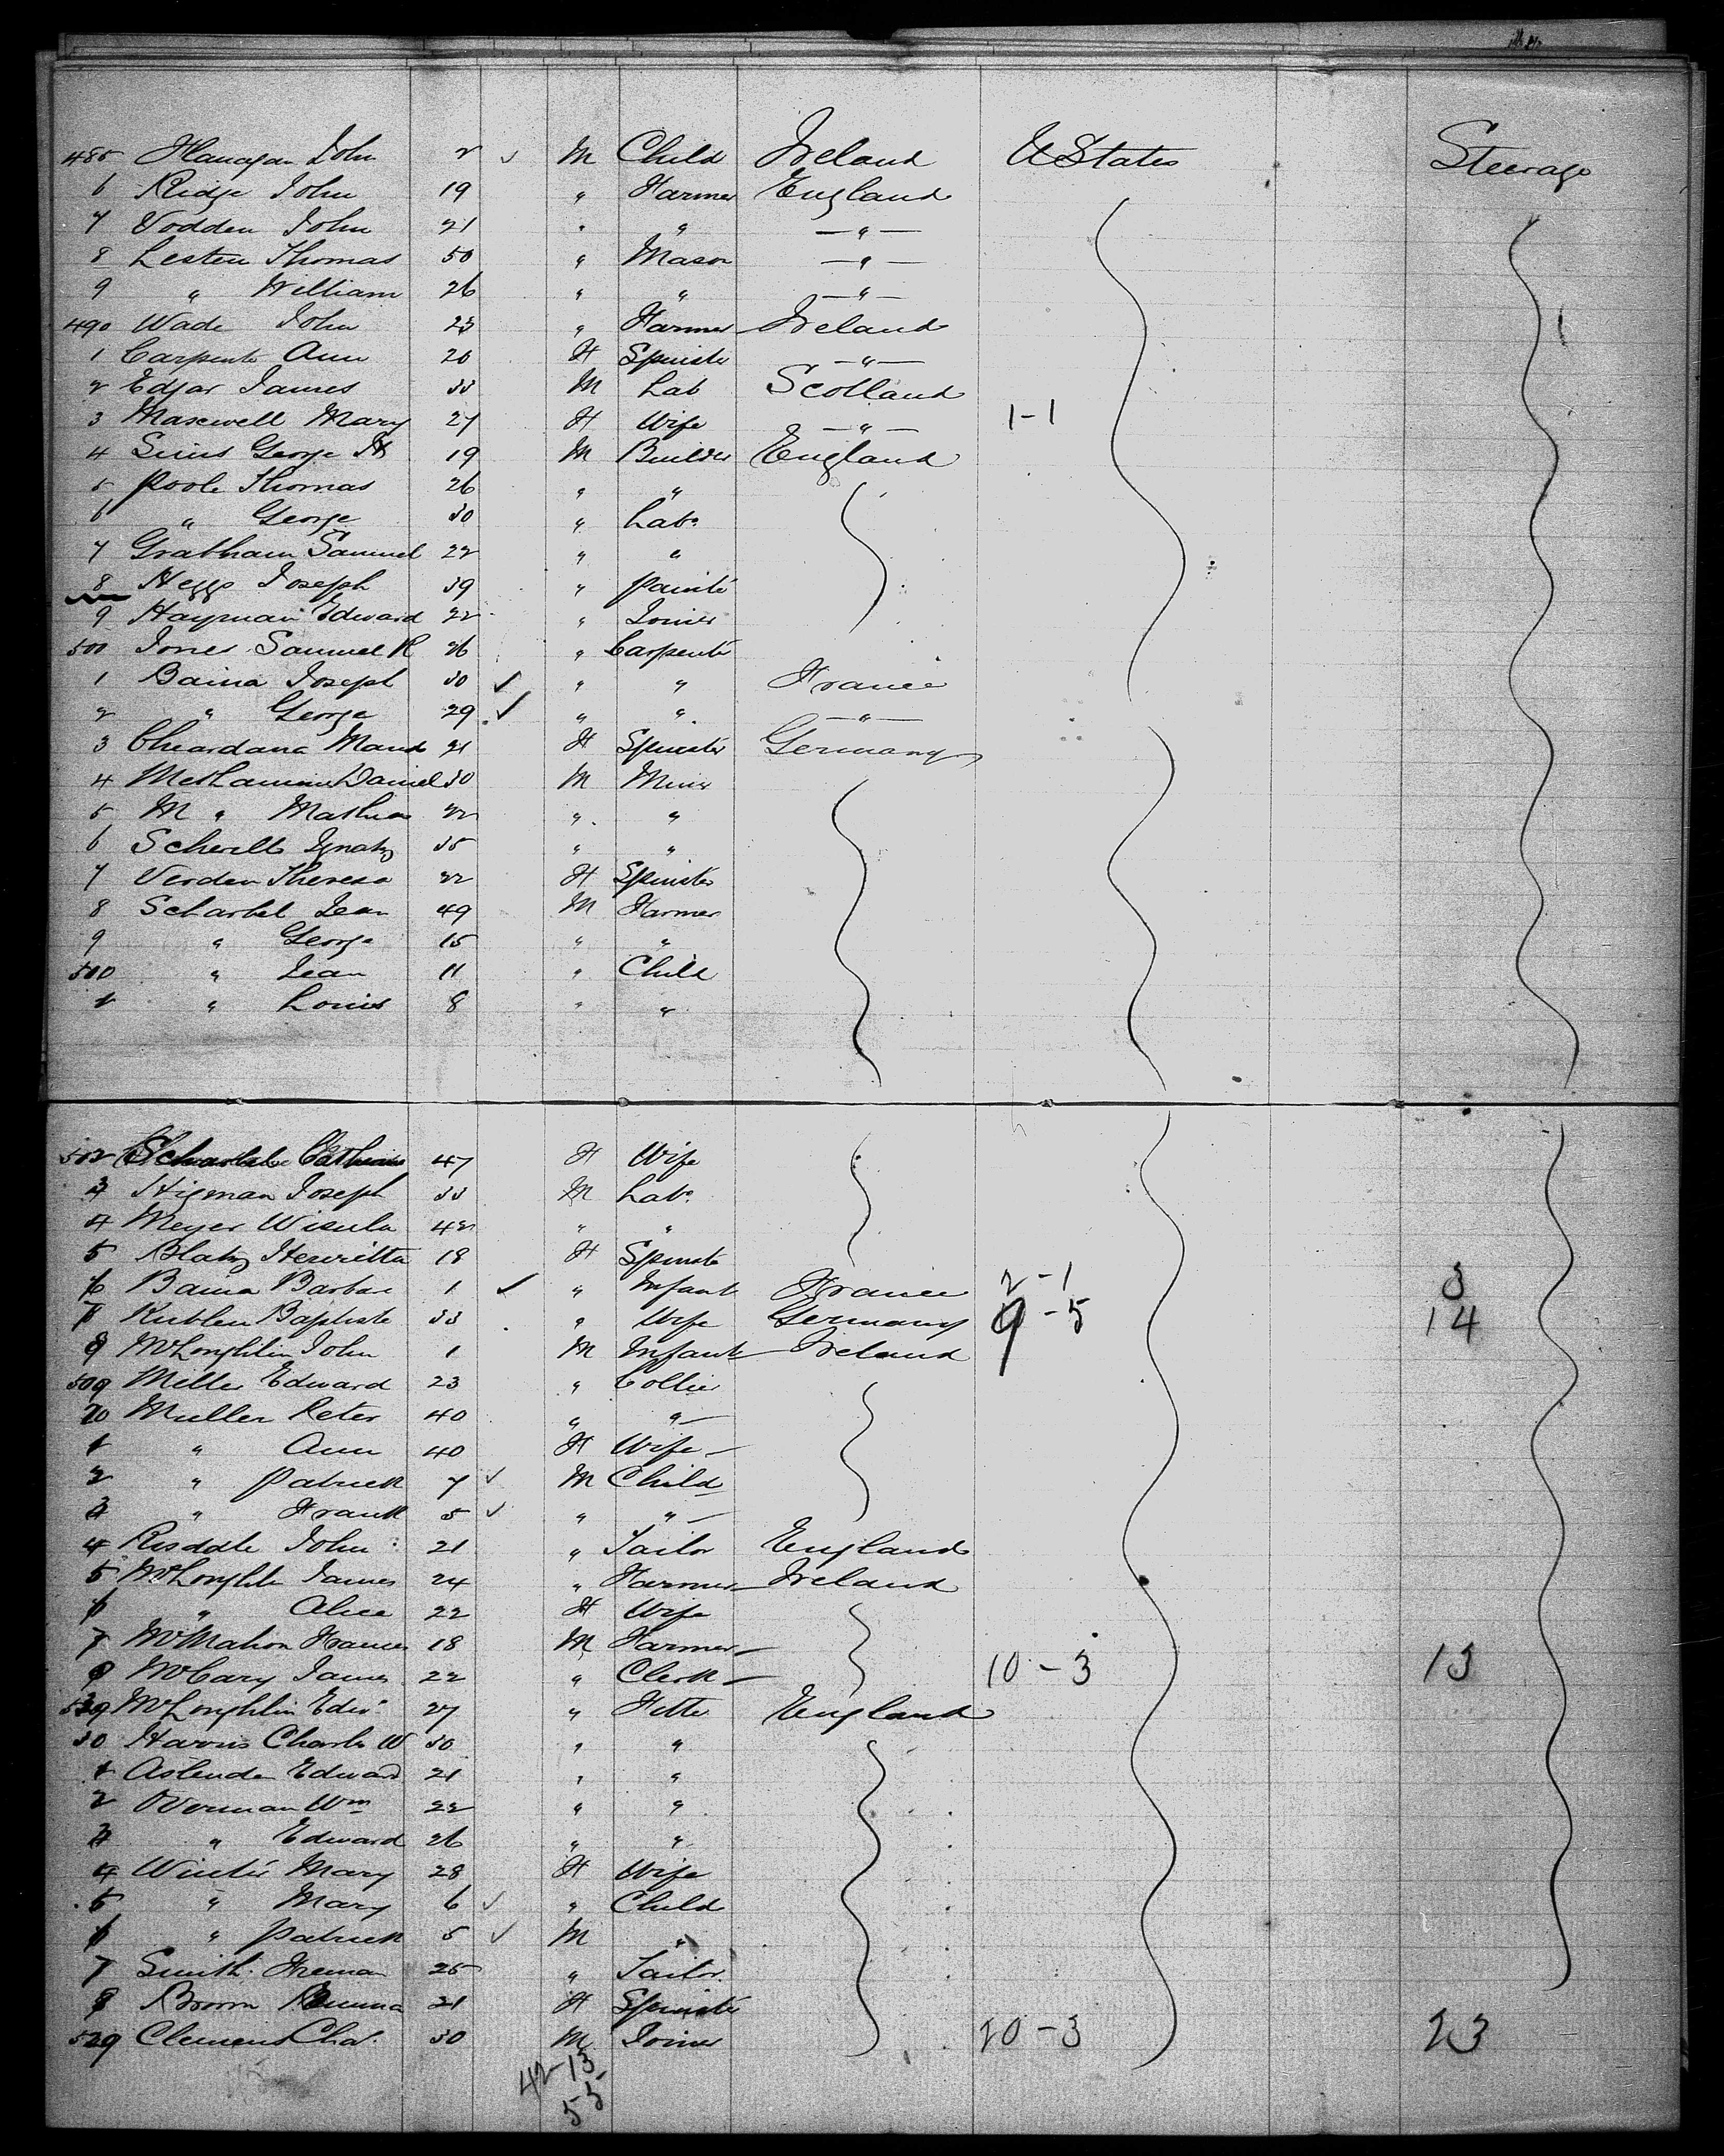 485 Flanagan John 2 ✓ M Child Ireland U States Steerage
6 Ridge John 19 " Farmer England
7 Vodden John 21 " " — " —
8 Lesten Thomas 50 " Mason — " —
9 " William 26 " " — " —
490 Wade John 23 " Farmer Ireland
1 Carpente Ann 20 F Spinster — " —
2 Edgar James 33 M Lab Scotland
3 Maxwell Mary 27 F Wife — " — 1-1
4 Sims George H 19 M Builder England
5 Poole Thomas 26 " "
6 " George 30 " Labr
7 Gratham Samuel 22 " "
8 Heggs Joseph 39 " Painte
9 Hayman Edward 22 " Joiner
500 Jones Samuel R 26 " Carpente
1 Baina Joseph 30 ✓ " " France
2 " George 29 ✓ " " — " —
3 21 F Spinster Germany
4 Daniel 30 M Miner
5 M " Mathias 22 " "
6 Ignatz 35 " "
7 Verden Theresa 22 F Spinster
8 Scharbel Jean 49 M Farmer
9 " George 15 " "
500 " Jean 11 " Child
1 " Louis 8 " "
502 Catherine 47 F Wife
3 Higman Joseph 33 M Labr
4 Meyer 42 " "
5 Blatz Henritta 18 F Spinste
6 Baina Barbara 1 ✓ " Infant France 2-1 3
7 Baptiste 33 " Wife Germany 9-5 14
8 McLoughlin John 1 M Infant Ireland
509 Miller Edward 23 " Collier
10 Muller Peter 40 " "
1 " Ann 40 F Wife
2 " Patrick 7 ✓ M Child
3 " Frank 5 ✓ " "
4 Risddle John 21 " Tailor England
5 McLoughlin James 24 " Farmer Ireland
6 " Alice 22 F Wife
7 McMahon Frances 18 M Farmer
8 McCary James 22 " Clerk 10-3 13
McLoughlin Edwd 27 " Fitte England
30 Harris Charles W 30 " "
1 Edward 21 " "
2 Overman Wm 22 " "
3 " Edward 26 " "
4 Winter Mary 28 F Wife
5 " Mary 6 ✓ " Child
6 " Patrick 5 ✓ M "
7 Smith 25 " Tailor
8 Brown Emma 21 F Spinster
529 Clemens Chas 30 M Joiner 20-3 23
42-13
55